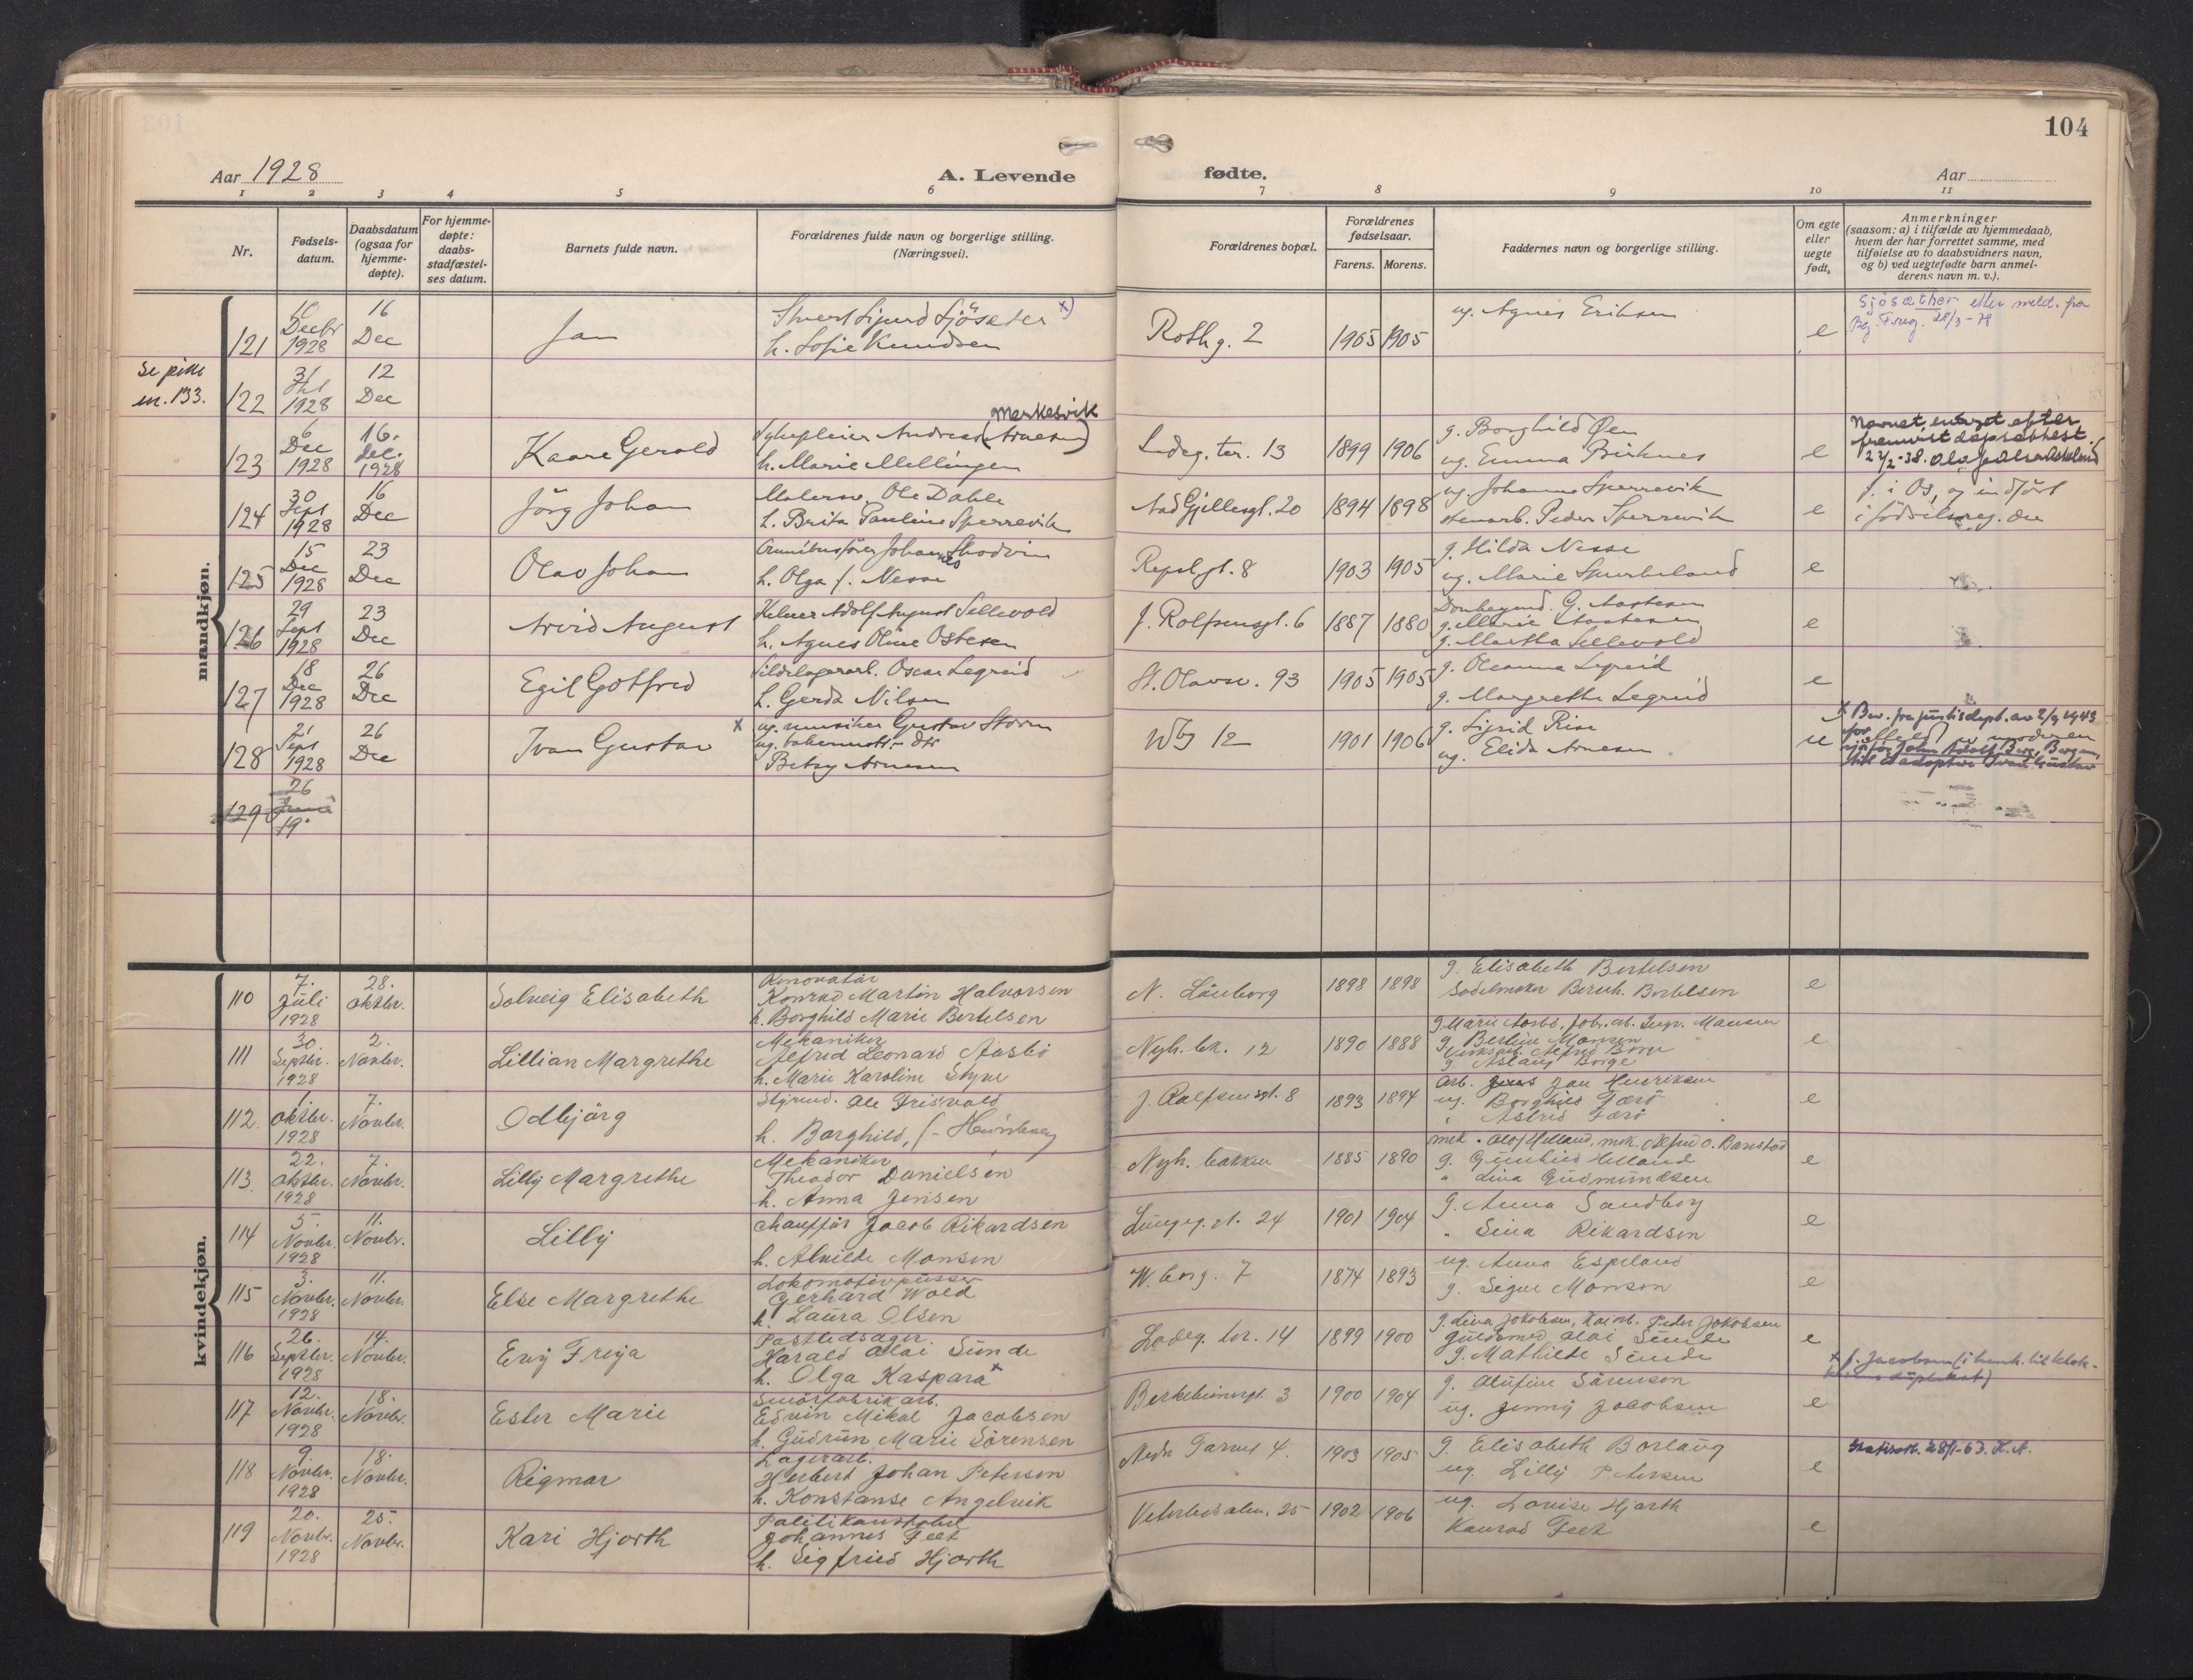 104
Aar 1928
A. Levende
fødte.
Aar
1 2 3 4 5 6 7 8 9 10 11
Nr.
Fødsels-
datum.
Daabsdatum
(ogsaa for
hjemme-
døpte).
For hjemme-
døpte:
daabs-
stadfæstel-
ses datum.
Barnets fulde navn.
Forældrenes fulde navn og borgerlige stilling.
(Næringsvei).
Forældrenes bopæl.
Forældrenes
fødselsaar.
Farens. Morens.
Faddernes navn og borgerlige stilling.
Om egte
eller
uegte
født.
Anmerkninger
(saasom: a) i tilfælde av hjemmedaab,
hvem der har forrettet samme, med
tilføielse av to daabsvidners navn,
og b) ved uegtefødte barn anmel-
derens navn m. v.).
mandkjøn.
121
10 Decbr 1928
16 Dec
Jan
Sigurd Sjösæter x)
h. Sofie Knudsen
Rothg. 2
1905 1905
ug. Agnes Eriksen
e
Sjösæther etter meld. fra
F.reg. 28/3-78
Se pike
nr. 133.
122
31 1928
12 Dec
123
6 Dec 1928
16. dec. 1928
Kaare Gerald
Merkesvik
Sykepleier Andreas (Arnesen)
h. Marie Mellingen
Ladeg. ter. 13
1899 1906
g. Borghild Øen
ug. Emma Birknes
e
Navnet endret efter
fremvist dåpsattest.
124
30 Sept 1928
16 Dec
Jörg Johan
Malersv. Ole Dahle
h. Brita Pauline Sperrevik
Aad Gjellesgt. 20
1894 1898
ug. Johanne Sperrevik
stenarb. Peder Sperrevik
e
f. i Os, og indført
i fødselsreg. der
125
15 Dec 1928
23 Dec
Olav Johan
Omnibusfører Johannes Skodvin
h. Olga f. Nesse
Repsl.gt. 8
1903 1905
g. Hilda Nesse
ug. Marie
e
126
29 Sept 1928
23 Dec
Arvid August
Kelner Adolf August Sellevold
h. Agnes Oline Ostesen
J. Rolfsensgt. 6
1887 1880
g. Marie
g. Martha Sellevold
e
127
18 Dec 1928
26 Dec
Egil Gotfred
Sildelagerarb. Oscar Legreid
h. Gerda Nilsen
St. Olavsv. 93
1905 1905
g. Oleanna Legreid
g. Margrethe Legreid
e
128
21 Sept 1928
26 Dec
Ivan Gustav x
ug. musiker Gustav Storm
ug.
Betzy Arnesen
Wbg 12
1901 1906
g. Sigrid Rise
ug. Elida Arnesen
u
x Bev. fra justisdept. av 2/9 1943
for
John Adolf Berg, Bergen,
til å adoptere Ivan Gustav
129
26
19
kvindekjøn.
110
7. Juli 1928
28. Oktbr.
Solveig Elisabeth
Renovatør
Konrad Martin Halvorsen
h. Borghild Marie Bertelsen
N. Læuborg
1898 1898
g. Elisabeth Bertelsen
Sadelmaker Bernh. Bertelsen
e
111
30. Septbr. 1928
2. Novbr.
Lillian Margrethe
Mekaniker
Alfred Leonard Aasbö
h. Marie Karoline Styve
Nyh. bk. 12
1890 1888
g. Marie Aasbö, fabr. arb. Ingv. Mansen
g. Bertine Mansen
Alfred Borge
g. Aslaug Borge
e
112.
1. Oktbr. 1928
7. Novbr.
Odbjörg
Styrmd. Ole Frisvold
h. Borghild, f.
J. Rolfsensgt. 8
1893 1894
Arb. Jan Henriksen
ug. Borghild Færö
" Astrid Færö
e
113.
22. Oktbr. 1928
7. Novbr.
Lilly Margrethe
Mekaniker
Theodor Danielsen
h. Anna Jensen
Nyh. bakken
1885 1890
mek. Olaf Helland, mek. Alfred O. Barstad
g. Gunhild Helland
" Lina Gudmundsen
e
114
5. Novbr. 1928
11. Novbr.
Lilly
Chauffør Jacob Rikardsen
h. Alvilde Monsen
Lungeg. gt. 24
1901 1904
g. Anna Sandberg
" Sina Rikardsen
e
115
3. Novbr. 1928
11. Novbr.
Else Margrethe
Lokomotivpusser
Gerhard Wold
h. Laura Olsen
W. borg. 7
1874 1893
ug. Anna Espeland
g. Signe Monson
e
116
26. Septbr. 1928
14. Novbr.
Evy Freya
Postledsager.
Harald Olai Sunde
h. Olga Kaspara x
Ladeg. ter. 14
1899 1900
g. Lina Jakobsen, Kaiarb. Peder Jakobsen
Guldsmed Olai Sunde
g. Mathilde Sunde
e
x f. Jacobsen (i henh. til klok-
kerens duplikat)
117
12. Novbr. 1928
18. Novbr.
Ester Marie
Smørfabrikarb.
Edvin Mikal Jacobsen
h. Gudrun Marie Sörensen
3
1900 1904
g. Alufine Sörensen
ug. Jenny Jacobsen
e
118
9. Novbr. 1928
18. Novbr.
Rigmor
Lagerarb.
Herbert Johan Petersen
h. Konstanse Angelvik
4.
1903 1905
g. Elisabeth Borlaug
ug. Lilly Petersen
e
28/1-63. K.A.
119
20. Novbr. 1928
25. Novbr.
Kari Hjorth
Johannes Feet
h. Sigfried Hjorth
25
1902 1906
ug. Lovise Hjorth
Konrad Feet
e